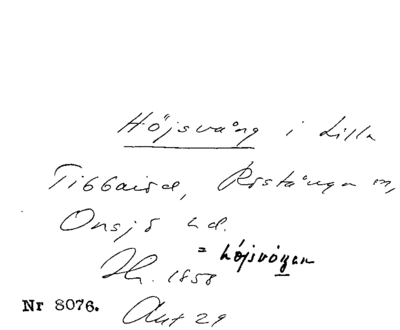 Höjsvång i Lilla
Tibbarød, Röstånga sn,
Onsjö hd.
= höjsvóŋen
Hr. 1858
Nr 8076.
Aut 29